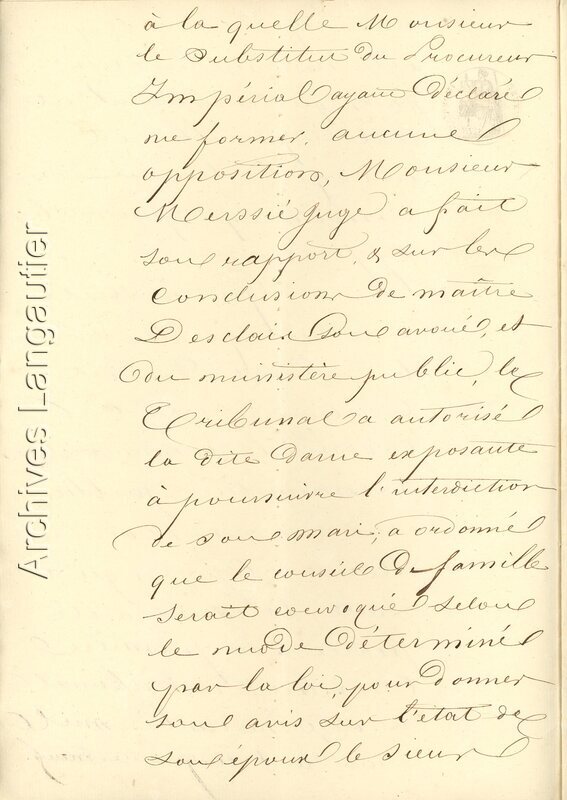 à la quelle Monsieur
le Substitut du Procureur
Impérial ayant déclaré
ne former aucune
opposition, Monsieur
Merssié Juge a fait
son rapport, & sur les
conclusions de maître
Desclaix son avoué, et
du ministère public, le
Tribunal a autorisé
la dite dame exposante
à poursuivre l'interdiction
de son mari, a ordonné
que le conseil de famille
serait convoqué selon
le mode déterminé
par la loi, pour donner
son avis sur l'état de
son époux le sieur
Archives Langautier